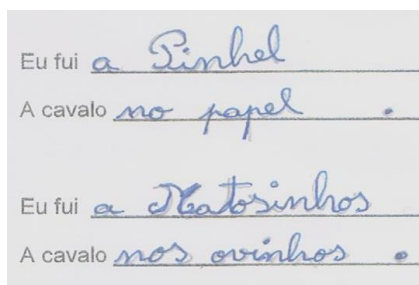 Eu fui a Pinhel
A cavalo no papel .
Eu fui a Matosinhos
A cavalo nos ovinhos .